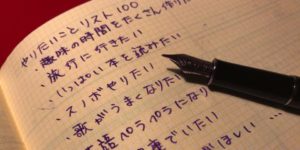 やりたいことリスト100
・趣味の時間をたくさん作り
・旅行に行きたい
・いっぱい本を読みたい
・スノボやりたい
・歌がうまくなりたい
ペラペラになり
でいたい
がほしい…